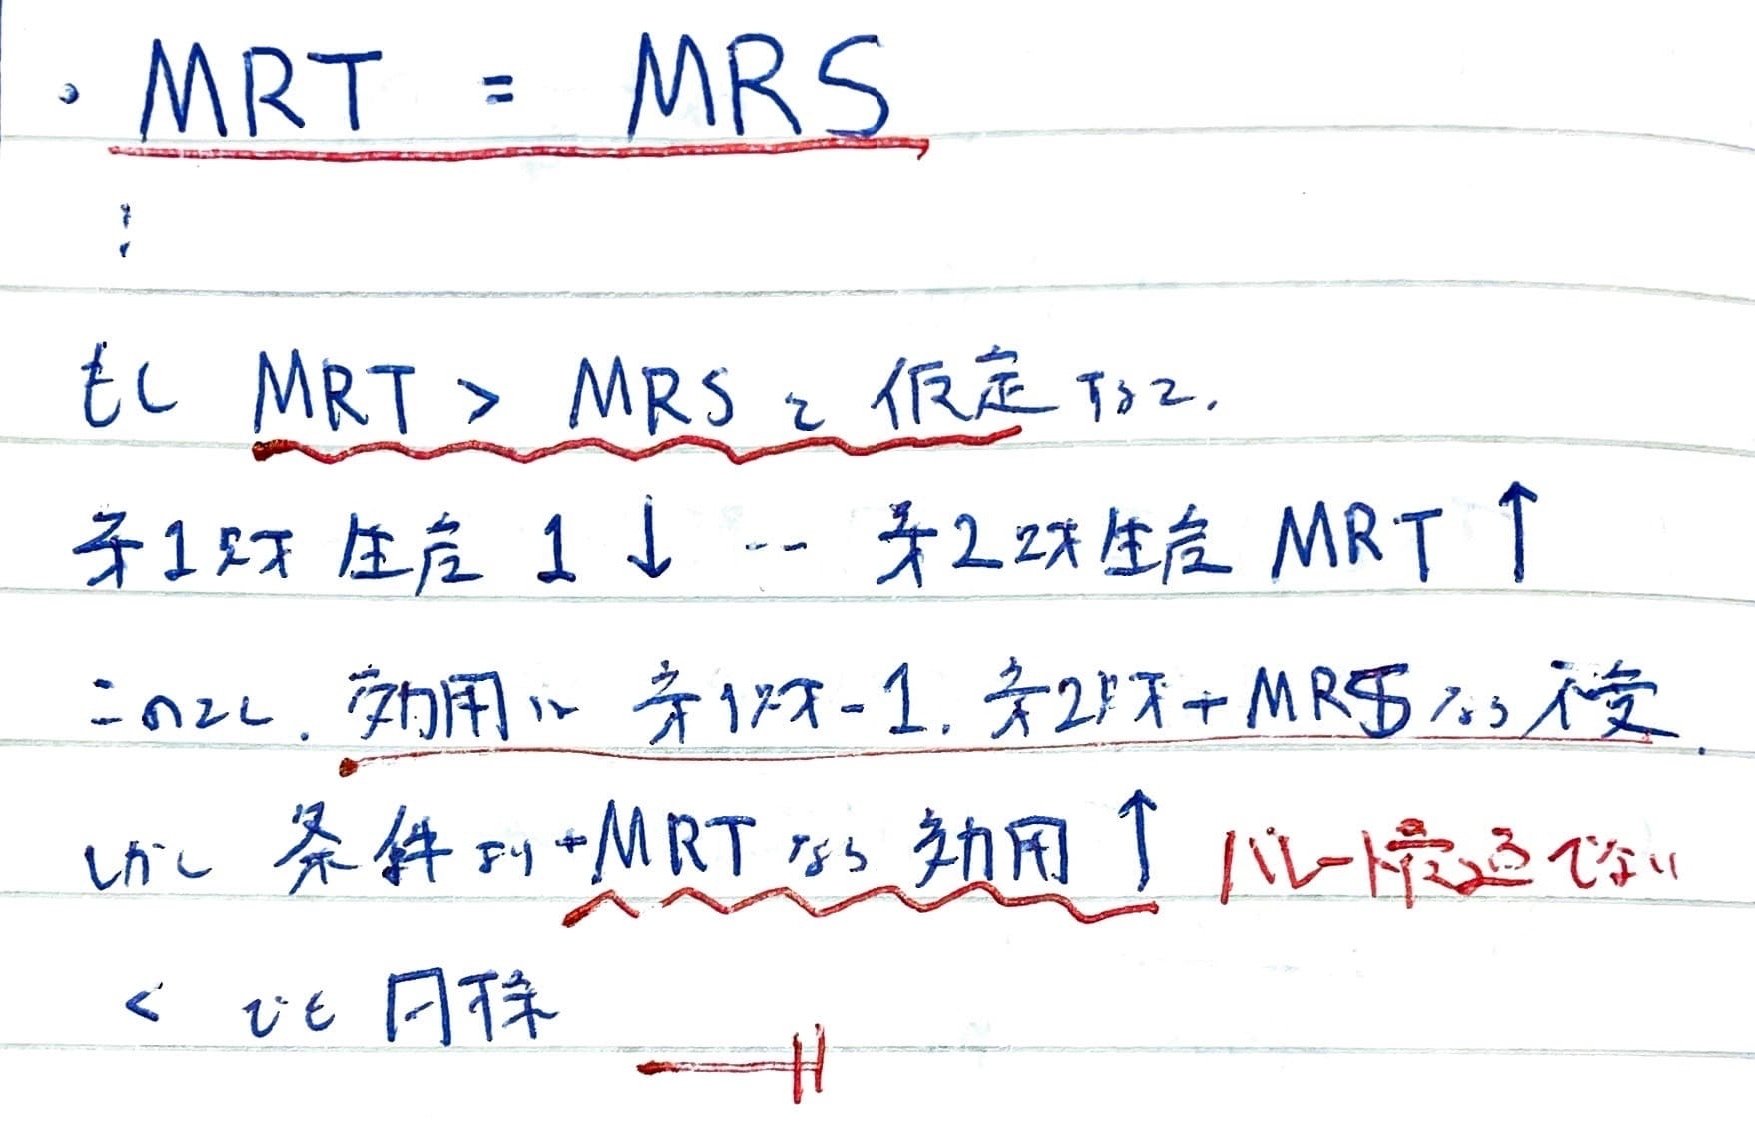 ・MRT = MRS
⋮
もし MRT > MRS と 仮定すると.
第1財生産 1 ↓ -- 第2財生産 MRT ↑
このとし. 効用は 第1財-1. 第2財+MRSなら不変.
しかし 条件より+MRTなら効用↑ パレート最適でない
< でも同様